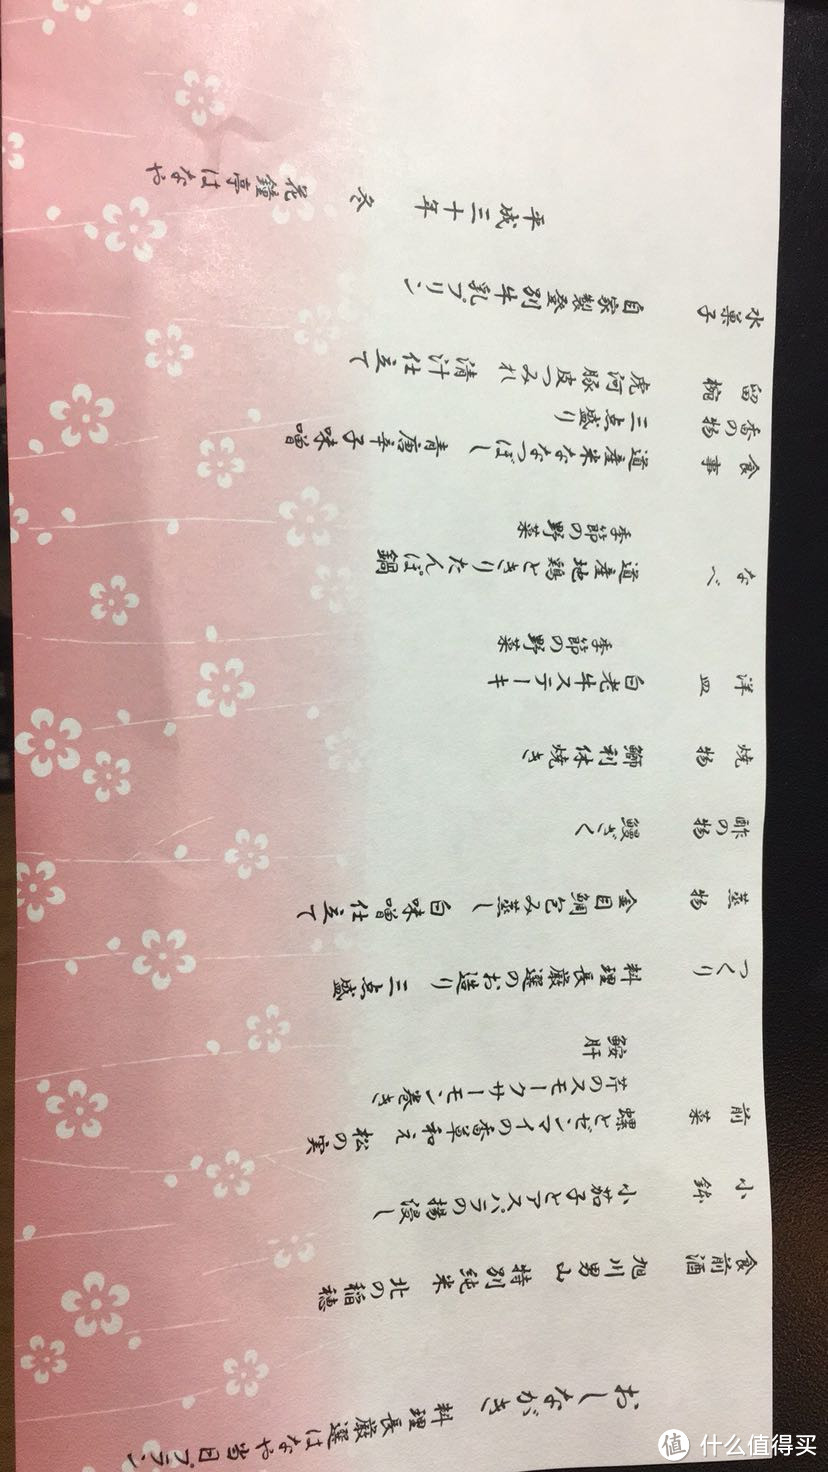 おしながき
料理長厳選はなや当日プラン
食前酒 旭川男山 特別純米 北の稲穂
小鉢 小茄子とアスパラの揚浸し
前菜 螺とゼンマイの香草和え 松の実
芹のスモークサーモン巻き
鮟肝
つくり 料理長厳選のお造り 三点盛
蒸物 金目鯛包み蒸し 白味噌仕立て
酢の物 鰻ざく
焼物 鰤利休焼き
洋皿 白老牛ステーキ
季節の野菜
なべ 道産地鶏ときりたんぽ鍋
季節の野菜
食事 道産米ななつぼし 青唐辛子味噌
香の物 三点盛り
留椀 虎河豚皮つみれ 清汁仕立て
水菓子 自家製登別牛乳プリン
平成三十年 冬
花鐘亭はなや
值 什么值得买